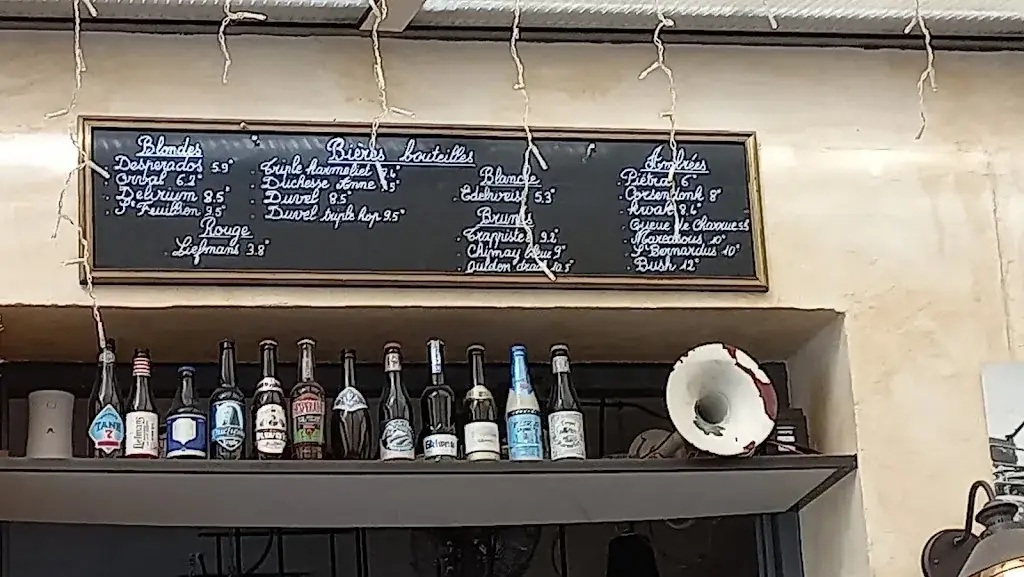 Bières bouteilles
Blondes
Desperados 5.9°
Orval 6.2°
Delirium 8.5°
St Feuillien 9.5°
Triple karmeliet
Duchesse Anne
Duvel 8.5
Duvel triple hop 9.5°
Rouge
Liefmans 3.8°
Blanche
Edelweiss 5.3°
Brunes
Trappiste 9.2°
Chimay bleue 9°
Gulden draak 10.5°
Ambrées
Piétra 6°
Corsendonk 8°
Kwak 8.4°
Queue de Charrue
Maredsous 10°
St Bernardus 10°
Bush 12°
TANK
7
DESPERADOS